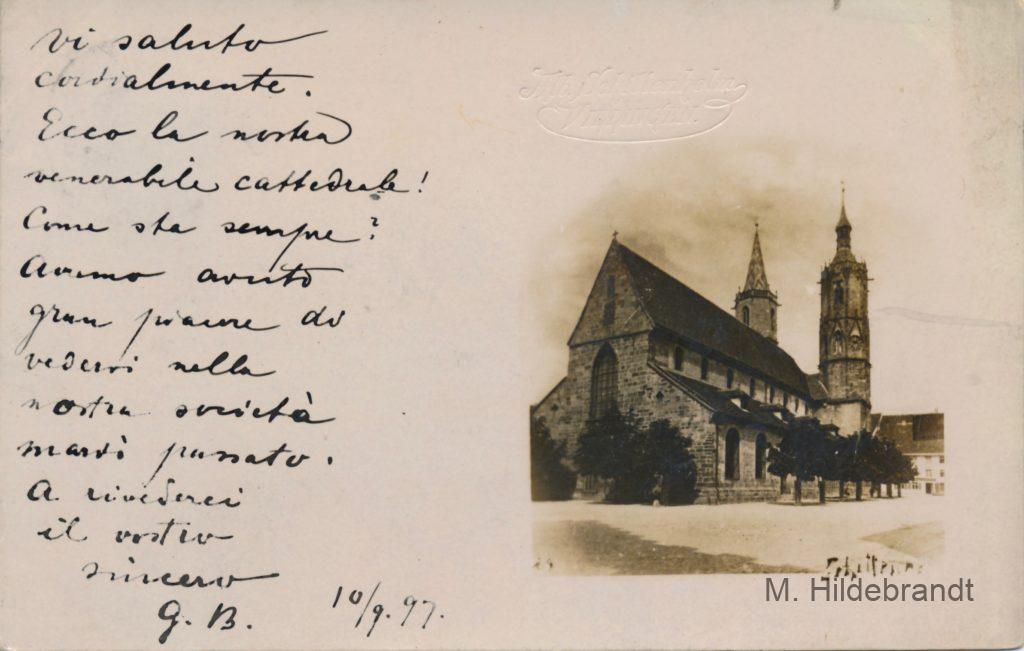 Vi saluto
cordialmente.
Ecco la nostra
venerabile cattedrale!
Come sta sempre?
Avemo avuto
gran piacere di
vedervi nella
nostra società
mardì passato.
A rivederci
il vostro
sincero
G. B.
10/9.97.
M. Hildebrandt